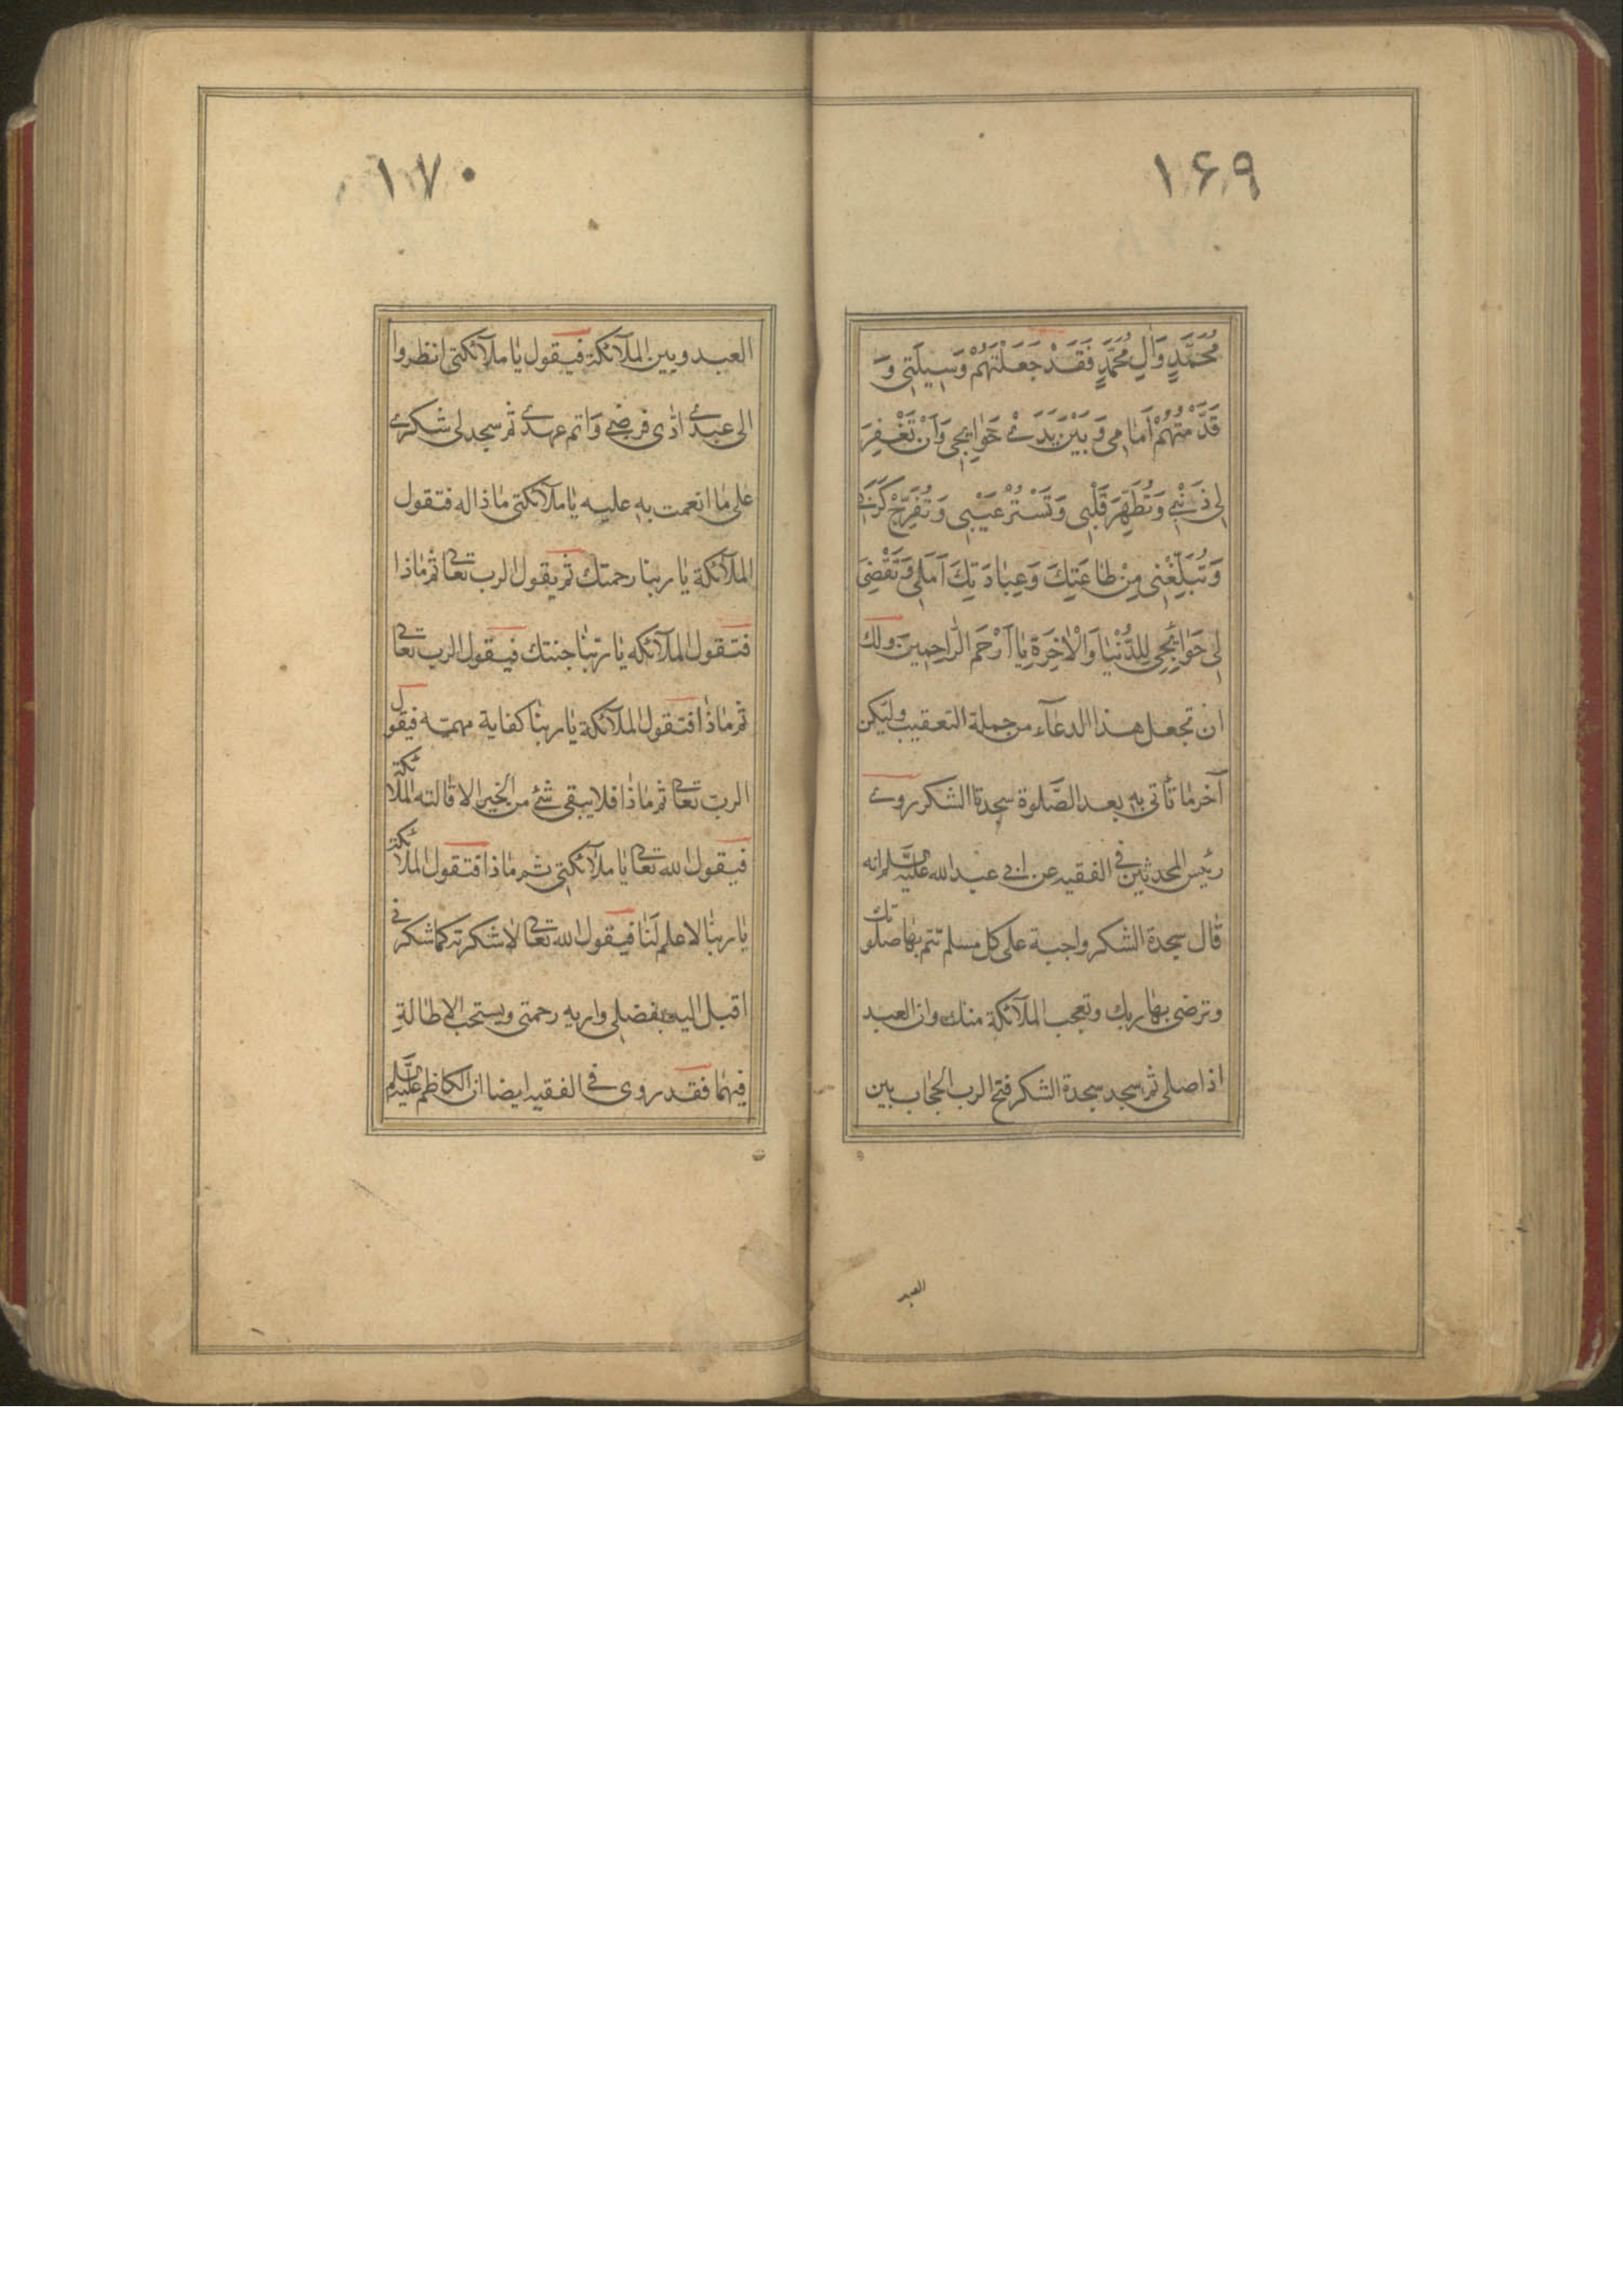 ۱۶۹
مُحَمَّدٍ وَاٰلِ مُحَمَّدٍ فَقَدْ جَعَلْتَهُمْ وَسِيلَتِي وَ
قَدَّمْتُهُمْ أَمَامِي وَبَيْنَ يَدَيْ حَوٰائِجِي وَاَنْ تَغْفِرَ
لِي ذَنْبِي وَتُطَهِّرَ قَلْبِي وَتَسْتُرَ عَيْبِي وَتُفَرِّجَ كَرْبِي
وَتُبَلِّغَنِي مِنْ طَاعَتِكَ وَعِبَادَتِكَ اَمَلِي وَتَقْضِيَ
لِي حَوٰائِجِي لِلدُّنْيَا وَالْاٰخِرَةِ يٰا اَرْحَمَ الرَّاحِمِينَ ولك
ان تجعل هذا الدعآء من جملة التعقيب وليكن
آخر ما تأتى به بعد الصَّلوة سجدة الشكر روى
رئيس المحدثين فى الفقيه عن ابى عبد الله عليه السَّلم انه
قال سجدة الشكر واجبة على كل مسلم تتم بها صلوتك
وترضى بها ربك وتعجب الملآئكة منك وان العبد
اذا صلى ثم سجد سجدة الشكر فتح الرب الحجاب بين
العبد
۱۷۰
العبد وبين الملآئكة فيقول يا ملآئكتى انظروا
الى عبدى ادّى فرضى واتم عهدى ثم سجد لى شكرى
على ما انعمت به عليه يا ملآئكتى ماذا له فتقول
الملآئكة يا ربنا رحمتك ثم يقول الرب تعالى ثم ماذا
فتقول الملآئكه يا ربّنا جنتك فيقول الرب تعالى
ثم ماذا فتقول الملآئكة يا ربنا كفاية مهمّه فيقول
الرب تعالى ثم ماذا فلا يبقى شئ من الخير الا قالته الملائكة
فيقول الله تعالى يا ملآئكتى ثم ماذا فتقول الملائكة
يا ربنا لا علم لَنا فيقول الله تعالى لاشكرنه كما شكرنى
اقبل اليه بفضلى واريه رحمتى ويستحب الاطالةِ
فيهما فقد روى فى الفقيه ايضا ان الكاظم عليه السَّلم